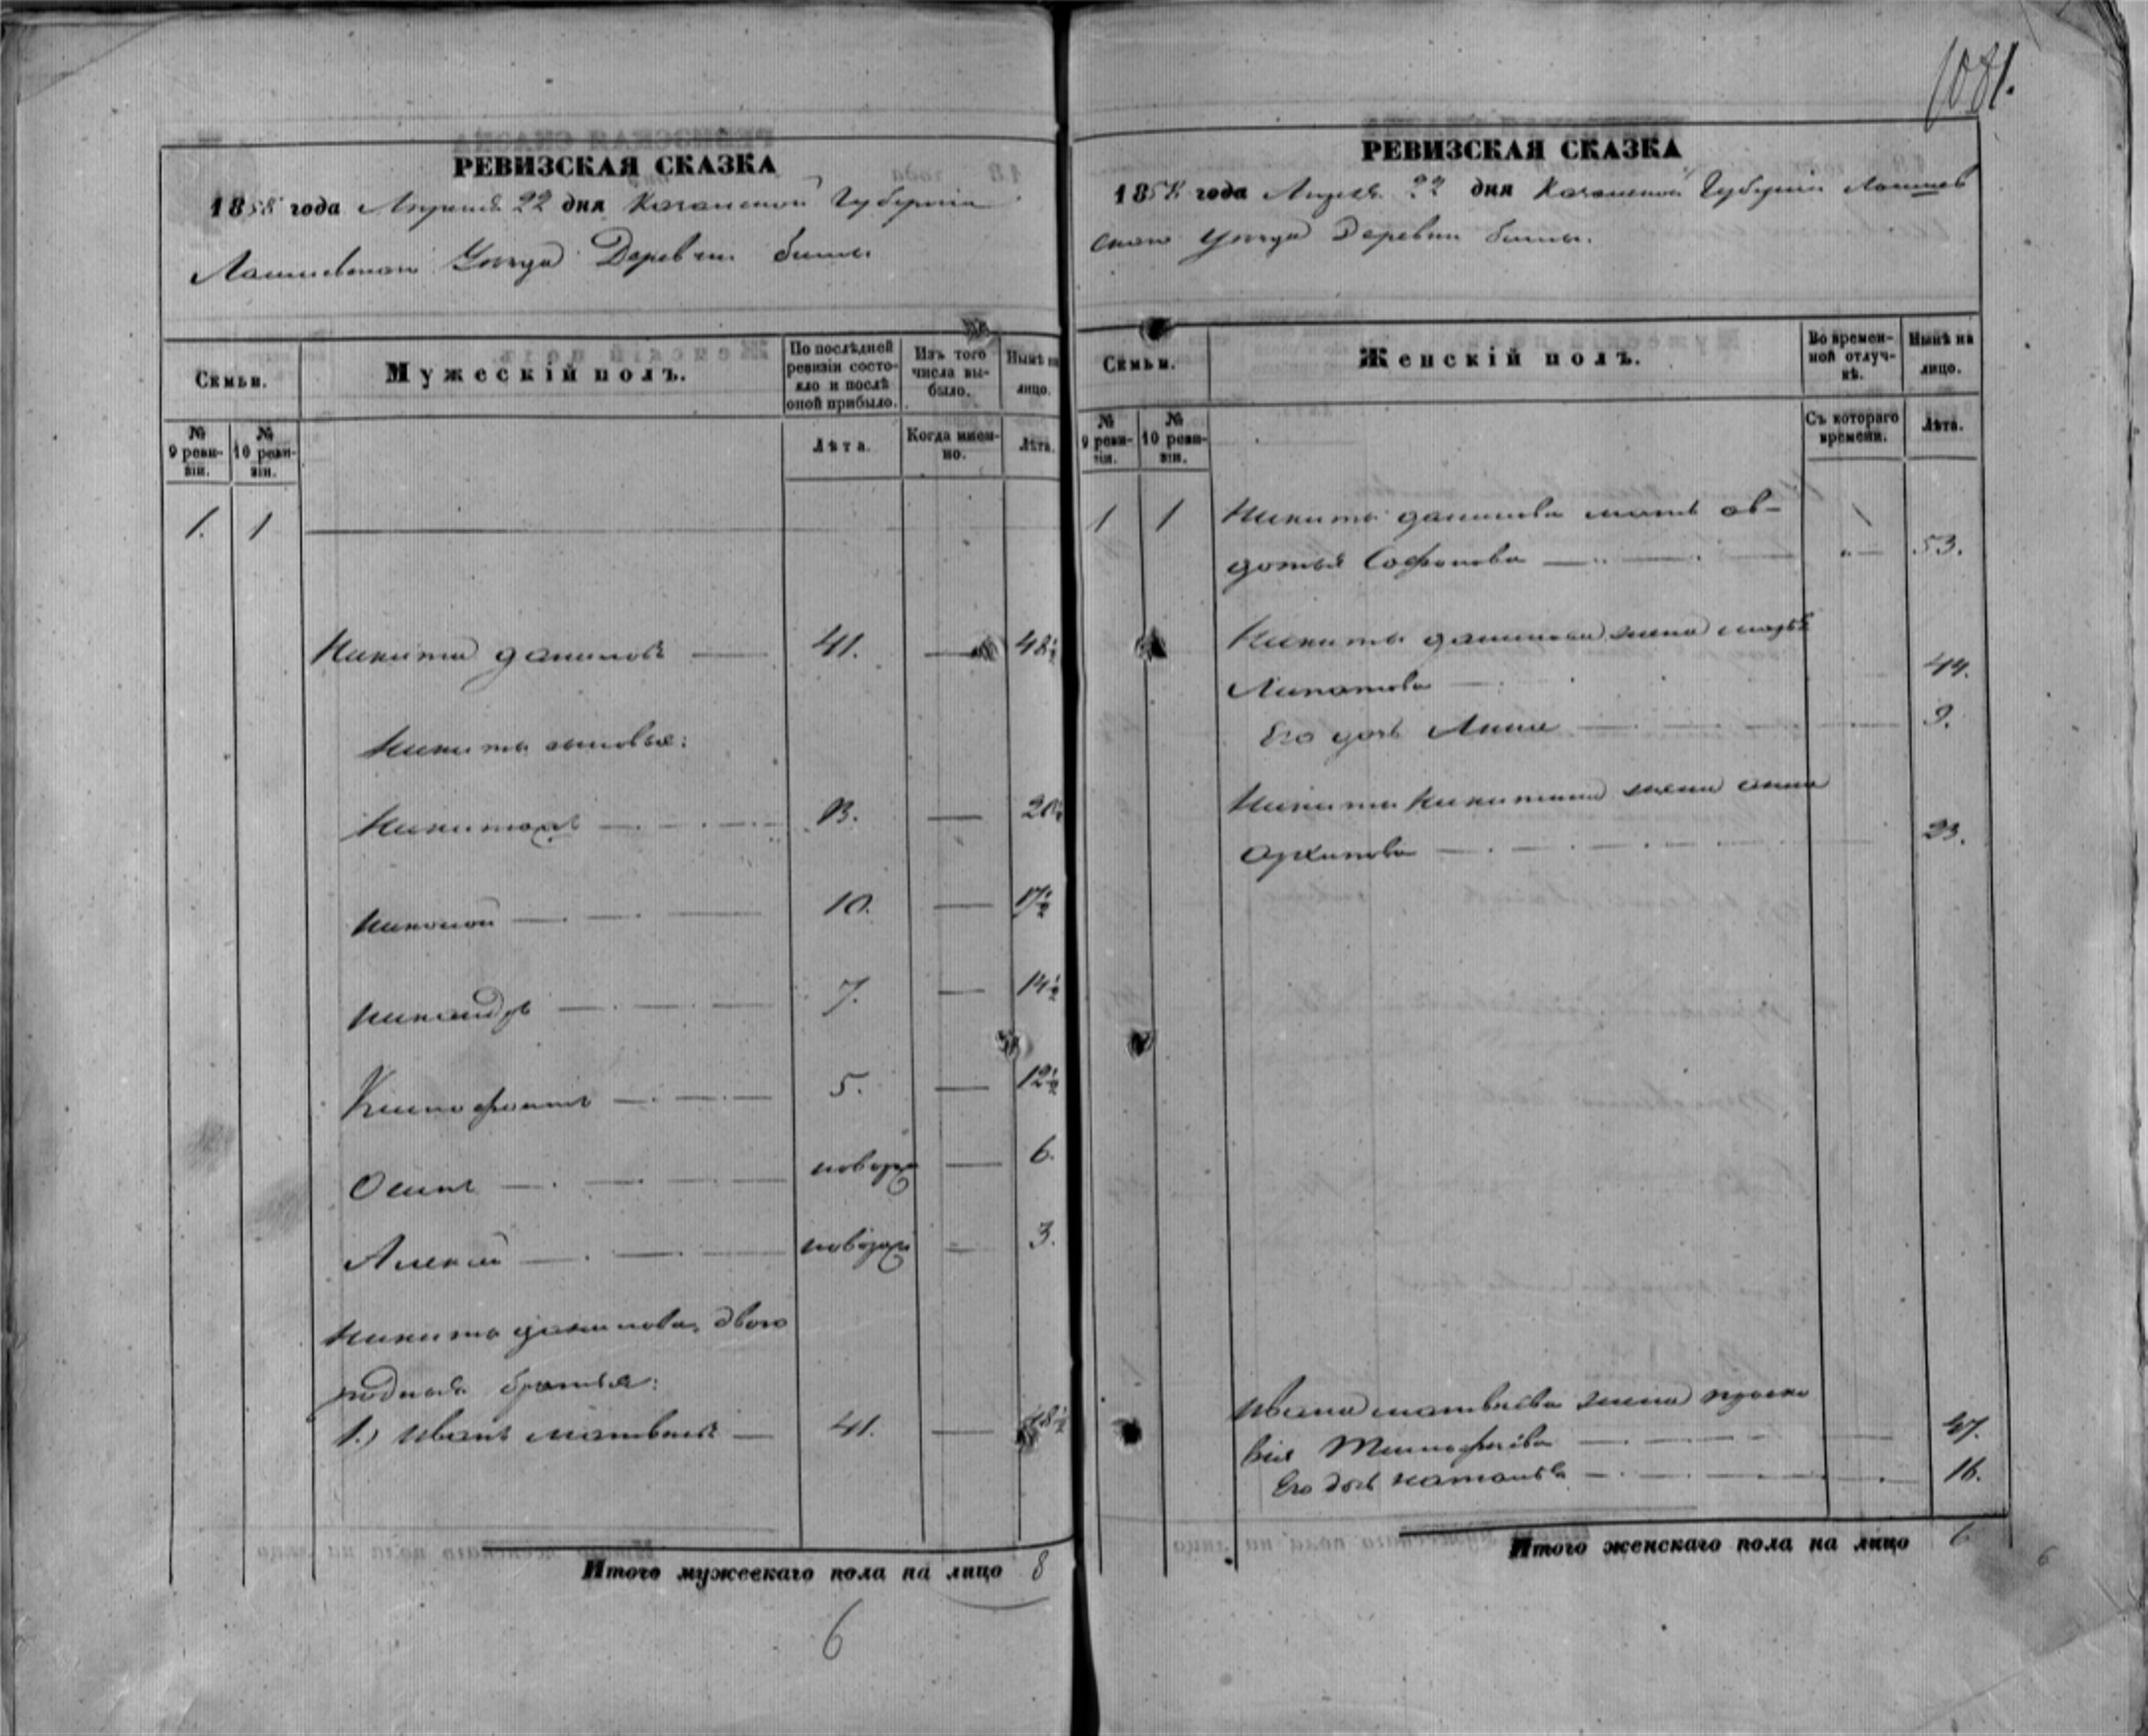 1081.
РЕВИЗСКАЯ СКАЗКА
1858 года Апреля 22 дня Казанской Губернiи
Лаишевскаго Уезда Деревни
Семьи.
Мужескій полъ.
По послѣдней ревизіи состояло и послѣ оной прибыло.
Изъ того числа выбыло.
Нынѣ на лицо.
№ 9 ревизіи.
№ 10 ревизіи.
Лѣта.
Когда именно.
Лѣта.
1. 1
Никита даниловъ 41. — 48½
Никиты сыновья:
13. — 20½
10. — 17½
никандръ 7. — 14½
Ксенофонтъ 5. — 12½
Осипъ новорож — 6.
Алексей новорож — 3.
Никиты данилова двою
родныя братья:
1.) Иванъ Матвеевъ — 41. — 48½
Итого мужескаго пола на лицо 8
6
РЕВИЗСКАЯ СКАЗКА
1858 года Апреля 22 дня Казанской Губернiи Лаишев
скаго Уезда Деревни
Семьи.
Женскій полъ.
Во временной отлучкѣ.
Нынѣ на лицо.
№ 9 ревизіи.
№ 10 ревизіи.
Съ котораго времени.
Лѣта.
1 1 Никиты данилова мать ав-
дотья Софронова 53.
Никиты данилова жена
Липатова 44.
Его дочь Анна 9.
Никиты никитина жена анна
Архипова 23.
Ивана матвеева жена праско
вья Тимофеева 47.
Его дочь наталья 16.
Итого женскаго пола на лицо 6
6